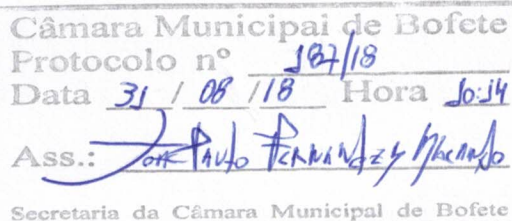 Câmara Municipal de Bofete
Protocolo nº 187/18
Data 31 / 08 /18 Hora 10:14
Ass.: Paulo
Secretaria da Câmara Municipal de Bofete